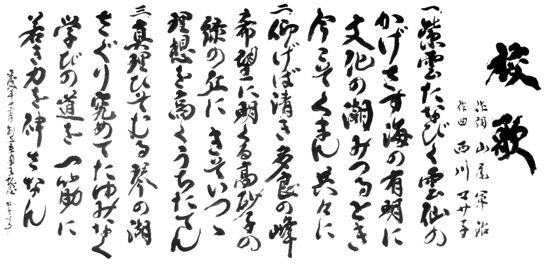 校歌
作詞 山尾 軍治
作曲 西川 マサ子
一、紫雲たなびく雲仙の
かげさす海の有明に
文化の潮みつるとき
今こそくまん 共々に
二、仰げば清き多良の峰
希望に明くる高砂子の
緑の丘に きそいつゝ
理想を高くうちたてん
三、真理ひそむる琴の湖
さぐり究めてたゆみなく
学びの道を 一筋に
若き力を 砕きなん